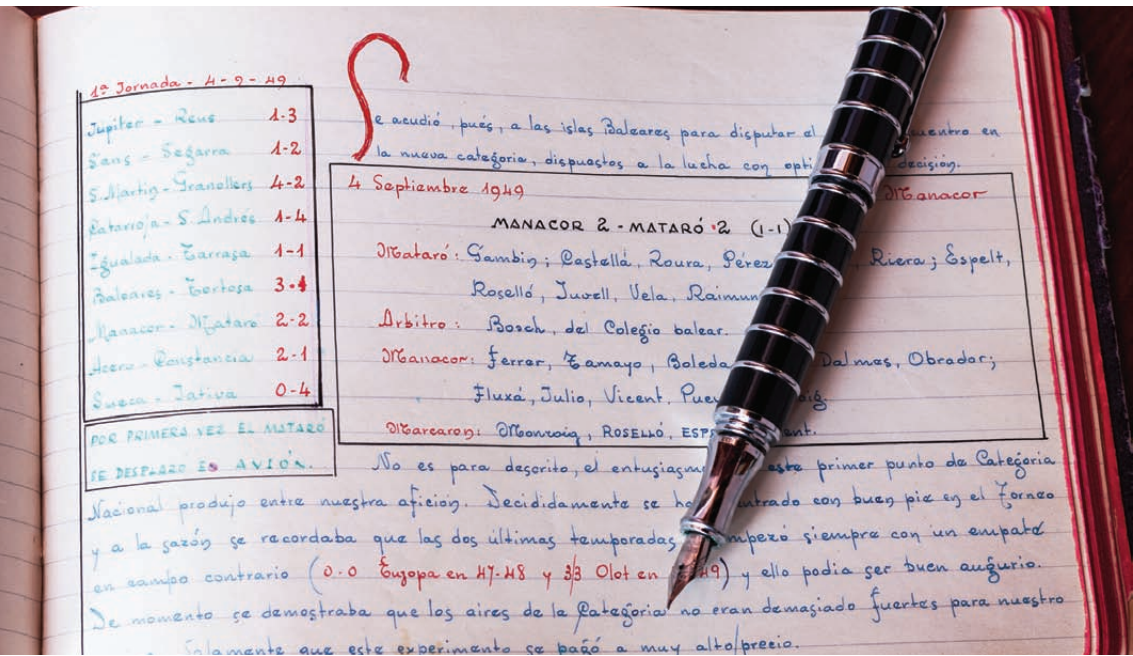 1ª Jornada - 4-9-49
Jupiter - Reus 1-3
Sans - Segarra 1-2
S. Martin - Granollers 4-2
Catarroja - S. Andrés 1-4
Igualada - Tarrasa 1-1
Baleares - Tortosa 3-1
Manacor - Mataró 2-2
Acero - Constancia 2-1
Sueca - Jativa 0-4
POR PRIMERA VEZ EL MATARÓ
SE DESPLAZO EN AVIÓN.
Se acudió, pués, a las islas Baleares para disputar el en
la nueva categoria, dispuestos a la lucha con decisión.
4 Septiembre 1949 Manacor
MANACOR 2 - MATARÓ 2 (1-1)
Mataró: Gambin; Castellá, Roura, Pérez Riera; Espelt,
Roselló, Juvell, Vela, Raimun
Arbitro: Bosch, del Colegio balear.
Manacor: Ferrer, Tamayo, Boleda Dalmas, Obrador;
Fluxá, Julio, Vicent,
Marcaron: Monroig, ROSELLÓ,
No es para descrito, el este primer punto de Categoria
Nacional produjo entre nuestra afición. Decididamente se ha con buen pie en el Torneo
y a la sazón se recordaba que las dos últimas temporadas siempre con un empate
en campo contrario (0-0 Europa en 47-48 y 3/3 Olot en 49) y ello podia ser buen augurio.
De momento se demostraba que los aires de la Categoria no eran demasiado fuertes para nuestro
que este experimento se pagó a muy alto precio.